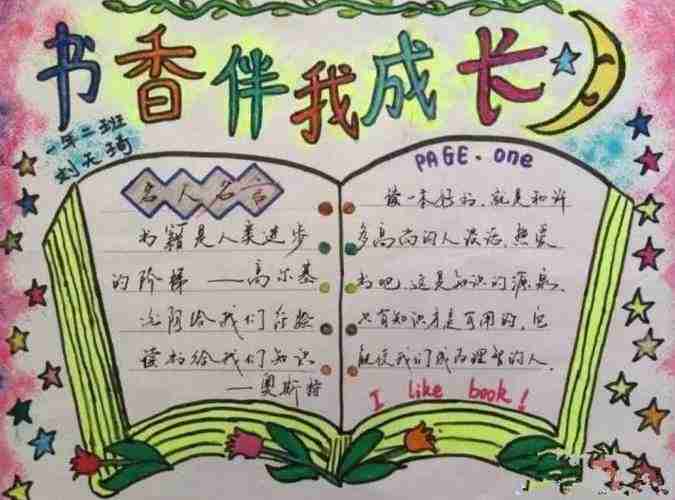 书香伴我成长
一年二班
名人名言
书籍是人类进步
的阶梯 ——高尔基
光阴给我们经验
读书给我们知识
——奥斯特
PAGE·one
读一本好书,就是和许
多高尚的人谈话,热爱
书吧,这是知识的源泉,
只有知识才是可用的,它
能使我们成为理智的人.
I like book!